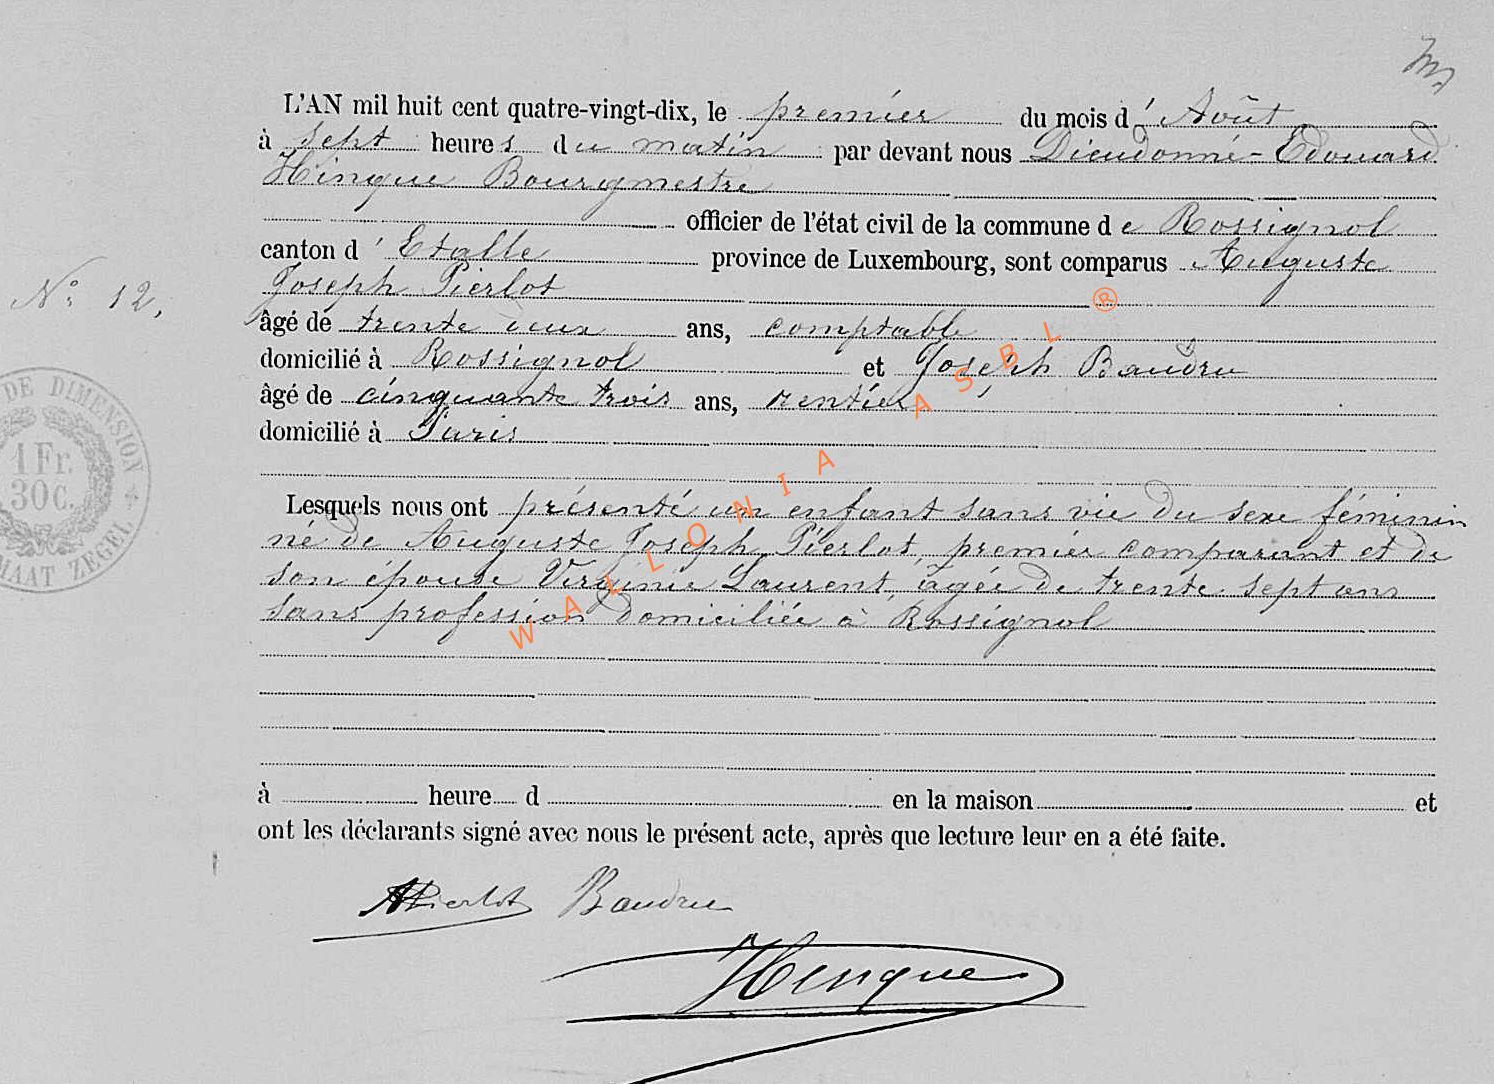 L'AN mil huit cent quatre-vingt-dix, le premier du mois d'Août
à sept heures du matin par devant nous Dieudonné-Edouard
Hinque Bourgmestre
officier de l'état civil de la commune de Rossignol
canton d'Etalle province de Luxembourg, sont comparus Auguste
Joseph Pierlot
âgé de trente deux ans, comptable
domicilié à Rossignol et Joseph Baudru
âgé de cinquante trois ans, rentier
domicilié à Paris
Lesquels nous ont présenté un enfant sans vie du sexe féminin
né de Auguste Joseph Pierlot, premier comparant et de
son épouse Virginie Laurent, âgée de trente sept ans
sans profession domiciliée à Rossignol
à heure d en la maison et
ont les déclarants signé avec nous le présent acte, après que lecture leur en a été faite.
APierlot Baudru
Hinque
N° 12,
DE DIMENSION
1 Fr.
30 c.
MAAT ZEGEL
WALLONIA ASBL ®